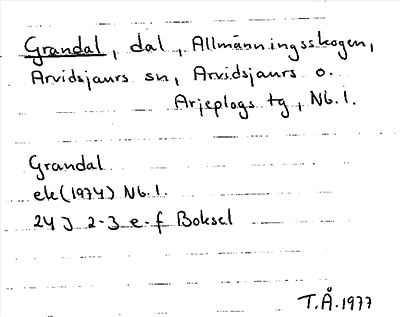 Grandal, dal, Allmänningsskogen,
Arvidsjaurs sn, Arvidsjaurs o.
Arjeplogs tg, Nb. l.
Grandal
ek (1974) Nb. l.
24 J 2-3 e-f Boksel
T.Å. 1977